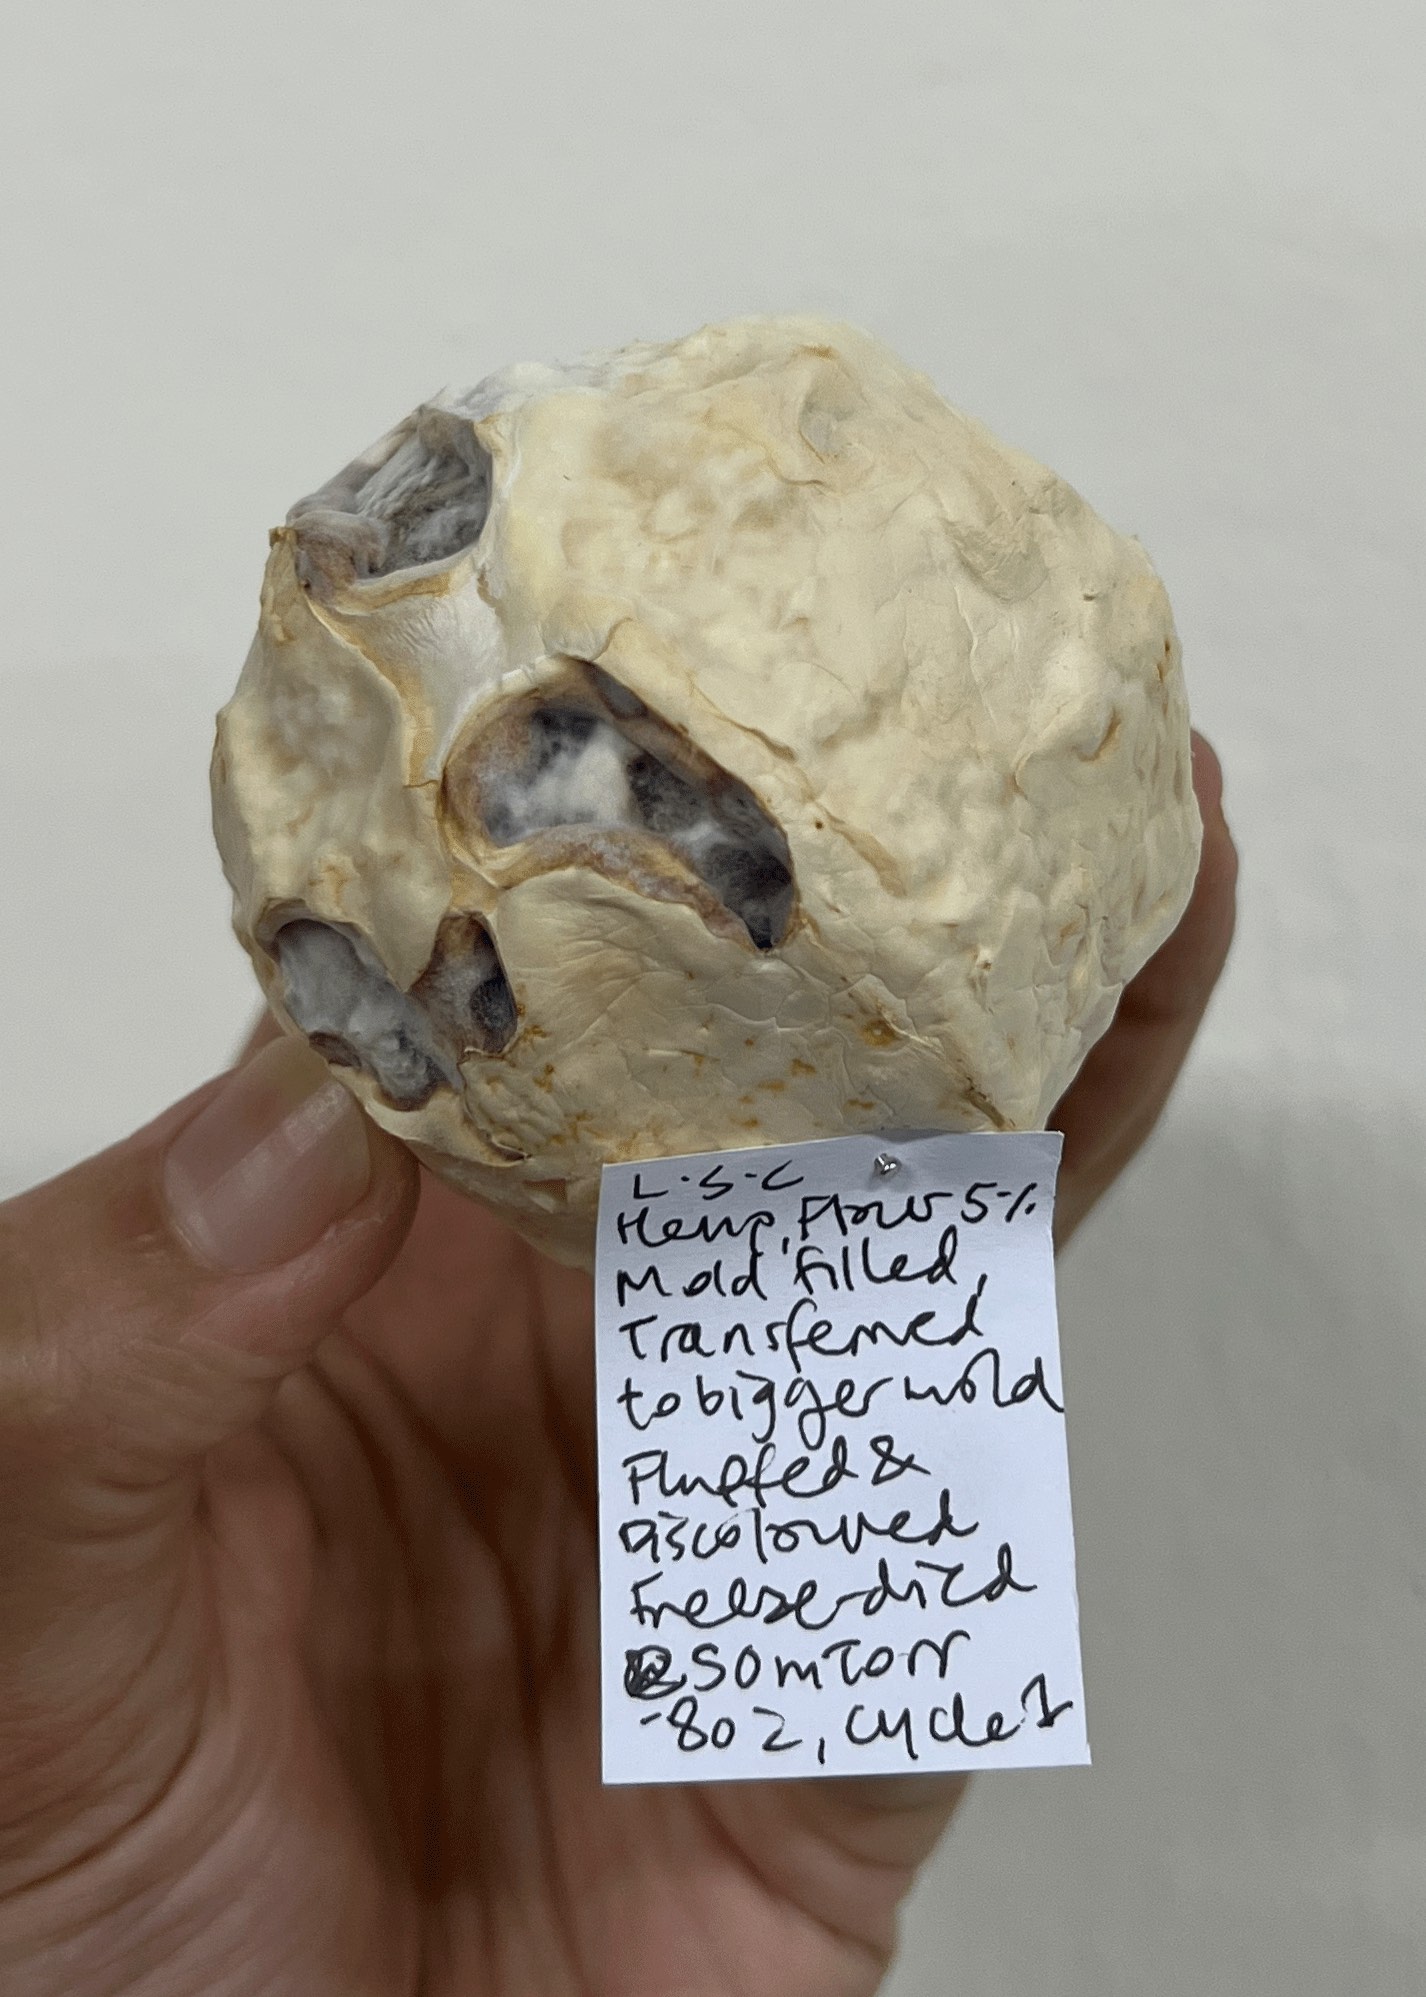 L.S.C
Hemp, Flour 5%
Mold filled,
Transferred
to bigger mold
Fluffed &
Discoloured
Freeze-dried
@ 50 mTorr
-80 2, cycle 1